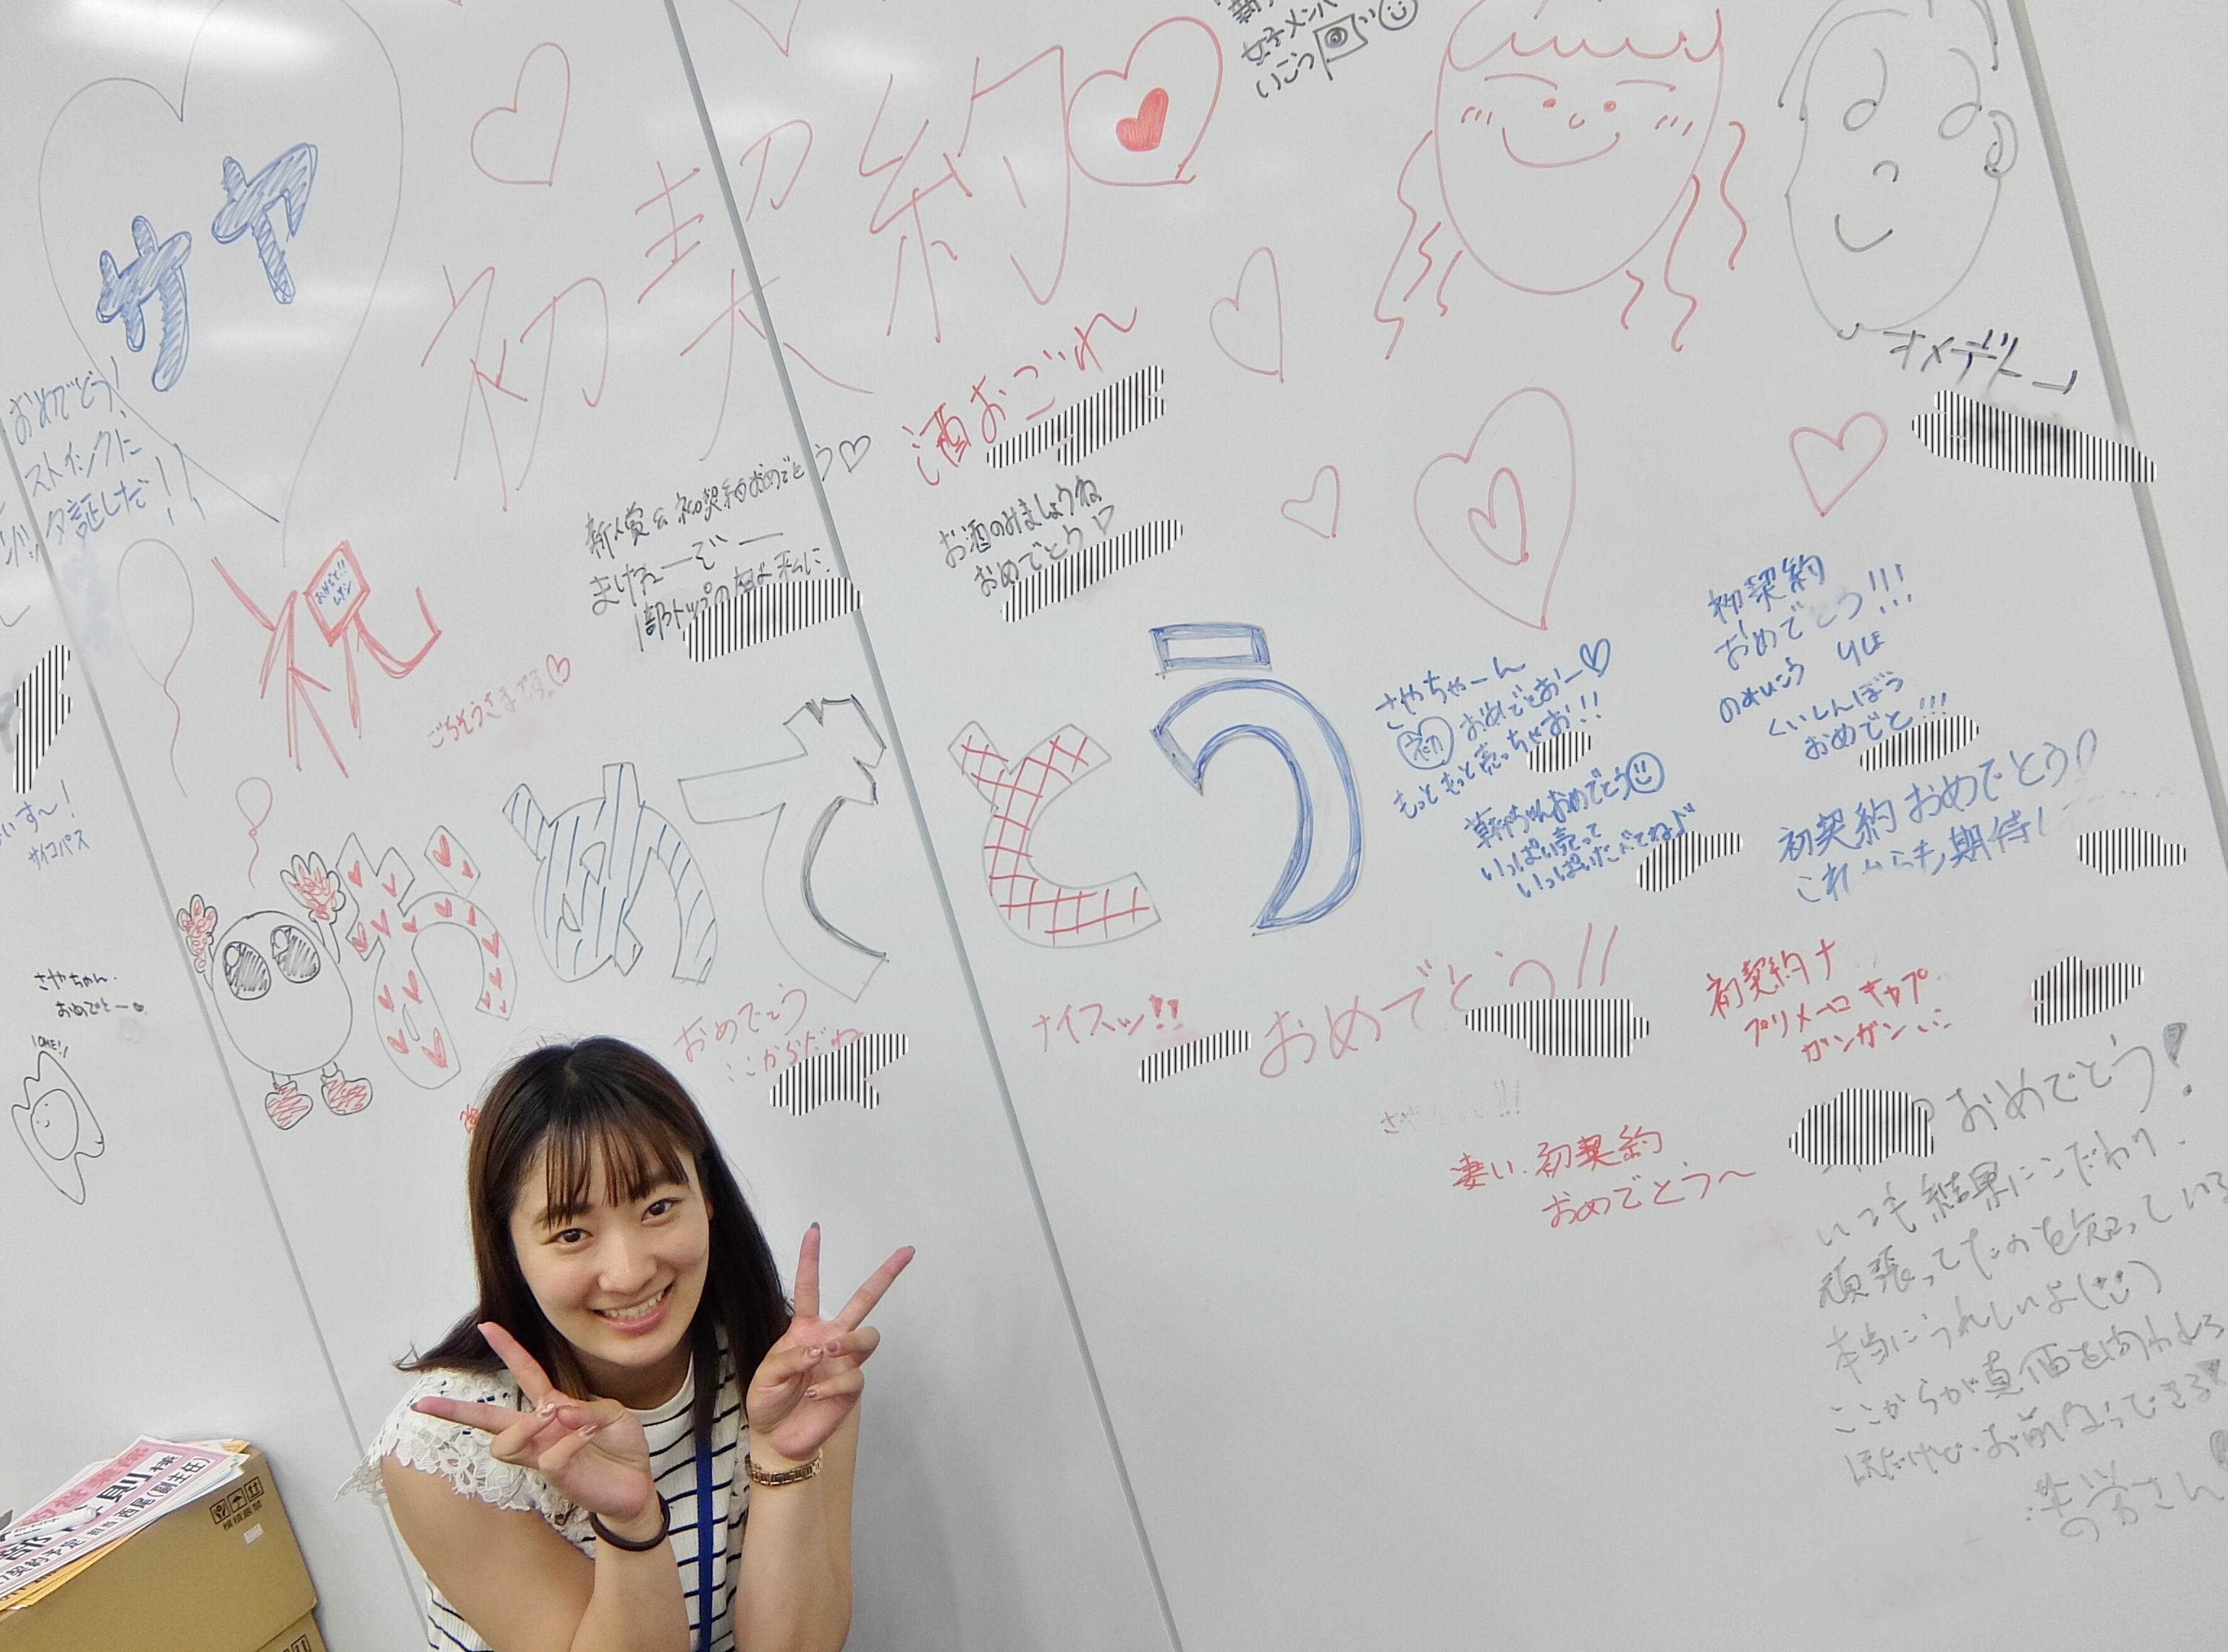 サヤ
初契約
女子メンバ
いこう
オメデトー
おめでとう!
ストイックに
た証しだ!!
酒おごれ
お酒のみましょうね
おめでとう
新人賞&初契約おめでとう♡
まけねーぞー
1部トップの座は私に
祝
おめでと!!
ごちそうさまです♡
おめでとう
さやちゃーん
初 おめでとおー♡
もっともっと売っちゃお!!
おめでとう
いっぱい売って
いっぱいたべてね♪
初契約
おめでとう!!!
くいしんぼう
おめでと!!!
初契約おめでとう
これからも期待!
サイコパス
さやちゃん
おめでとー
おめでとう
ここからだね
ナイスッ!!
おめでとう!!
初契約ナ
プリメーロキャプ
ガンガンいこ
凄い、初契約
おめでとう〜
おめでとう!
いつも結果にこだわり
頑張ってたのを知っている
本当にうれしいよ
ここからが真価を問われる
則様
担当 西尾(副主任)
契約予定